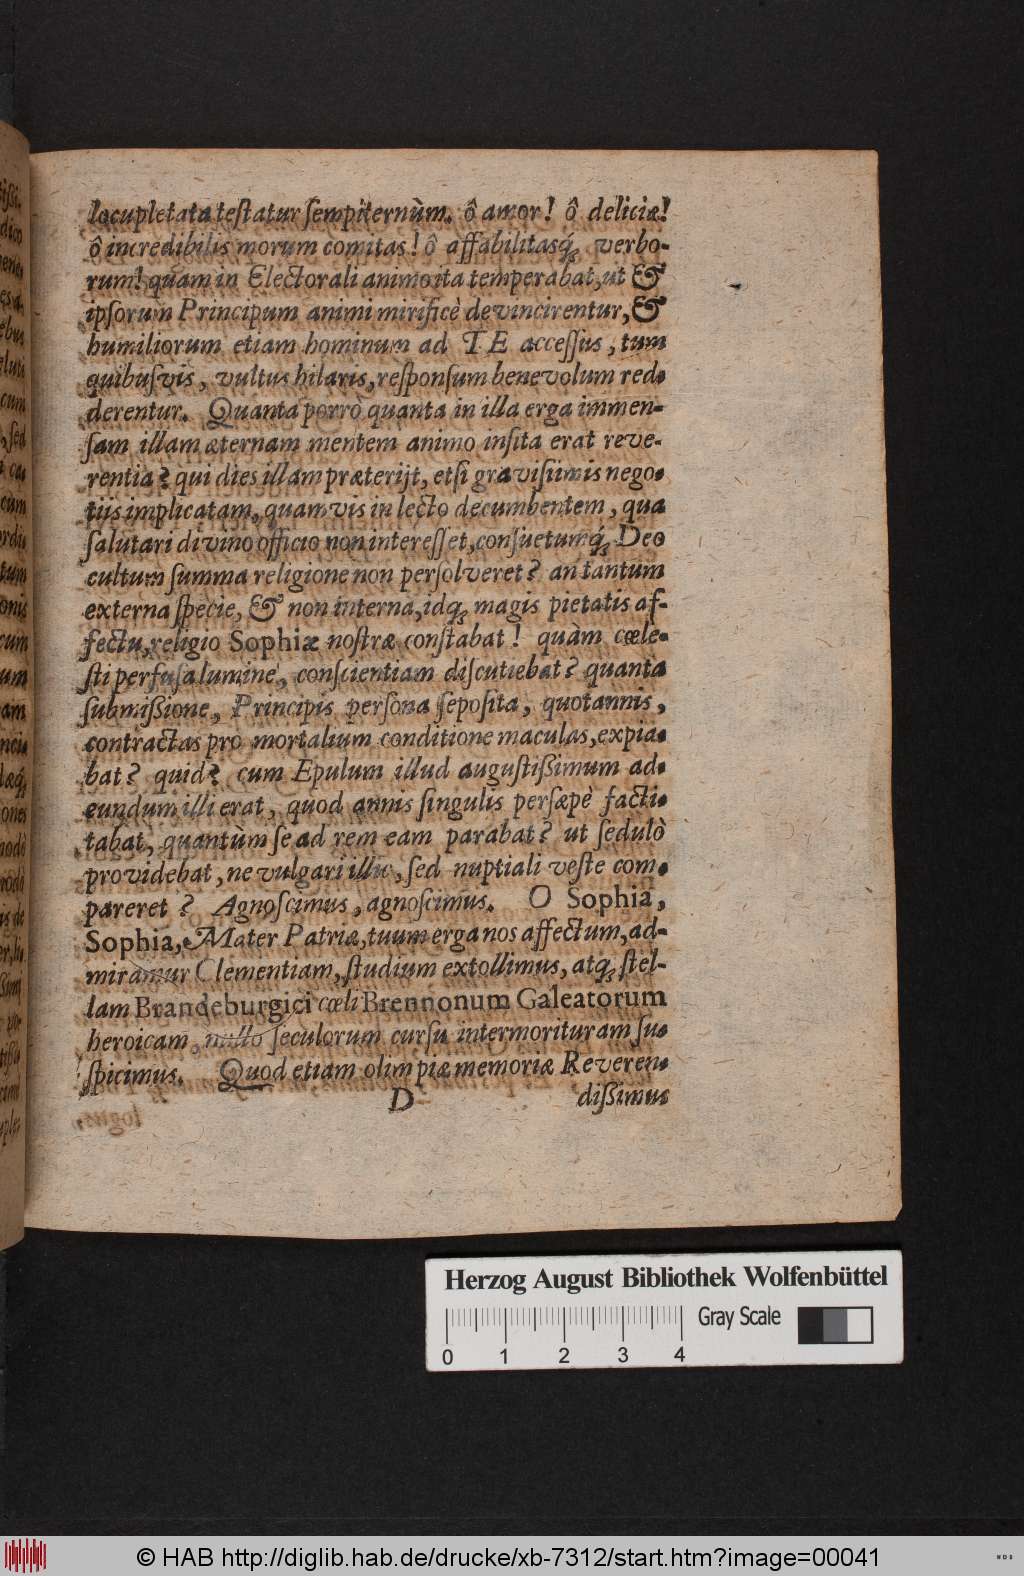 locupletata testatur ſempiternùm. ô amor! ô deliciæ!
ô incredibilis morum comitas! ô affabilitasq́; verbo-
rum! quam in Electorali animo ita temperabat, ut &
ipſorum Principum animi mirificè devincirentur, &
humiliorum etiam hominum ad TE acceſſus, tum
quibuſvis, vultus hilaris, reſponſum benevolum red-
derentur. Quanta porrò quanta in illa erga immen-
ſam illam æternam mentem animo inſita erat reve-
rentia? qui dies illam præterijt, etſi graviſſimis nego-
tiis implicatam, quamvis in lecto decumbentem, qua
ſalutari divino officio non intereſſet, conſuetumq́; Deo
cultum ſumma religione non perſolveret? an tantum
externa ſpecie, & non interna, idq; magis pietatis af-
fectu, religio Sophiæ noſtræ conſtabat! quàm cœle-
ſti perfuſa lumine, conſcientiam diſcutiebat? quanta
ſubmißione, Principis perſona ſepoſita, quotannis,
contractas pro mortalium conditione maculas, expia-
bat? quid? cum Epulum illud auguſtißimum ad-
eundum illi erat, quod annis ſingulis perſæpè facti-
tabat, quantùm ſe ad rem eam parabat? ut ſedulò
providebat, ne vulgari illic, ſed nuptiali veſte com-
pareret? Agnoſcimus, agnoſcimus. O Sophia,
Sophia, Mater Patriæ, tuum erga nos affectum, ad-
miramur Clementiam, ſtudium extollimus, atq; ſtel-
lam Brandeburgici cœli Brennonum Galeatorum
heroicam, nullo ſeculorum curſu intermorituram ſu-
ſpicimus. Quod etiam olim piæ memoriæ Reveren-
D dißimus
Herzog August Bibliothek Wolfenbüttel
Gray Scale
0 1 2 3 4
© HAB http://diglib.hab.de/drucke/xb-7312/start.htm?image=00041